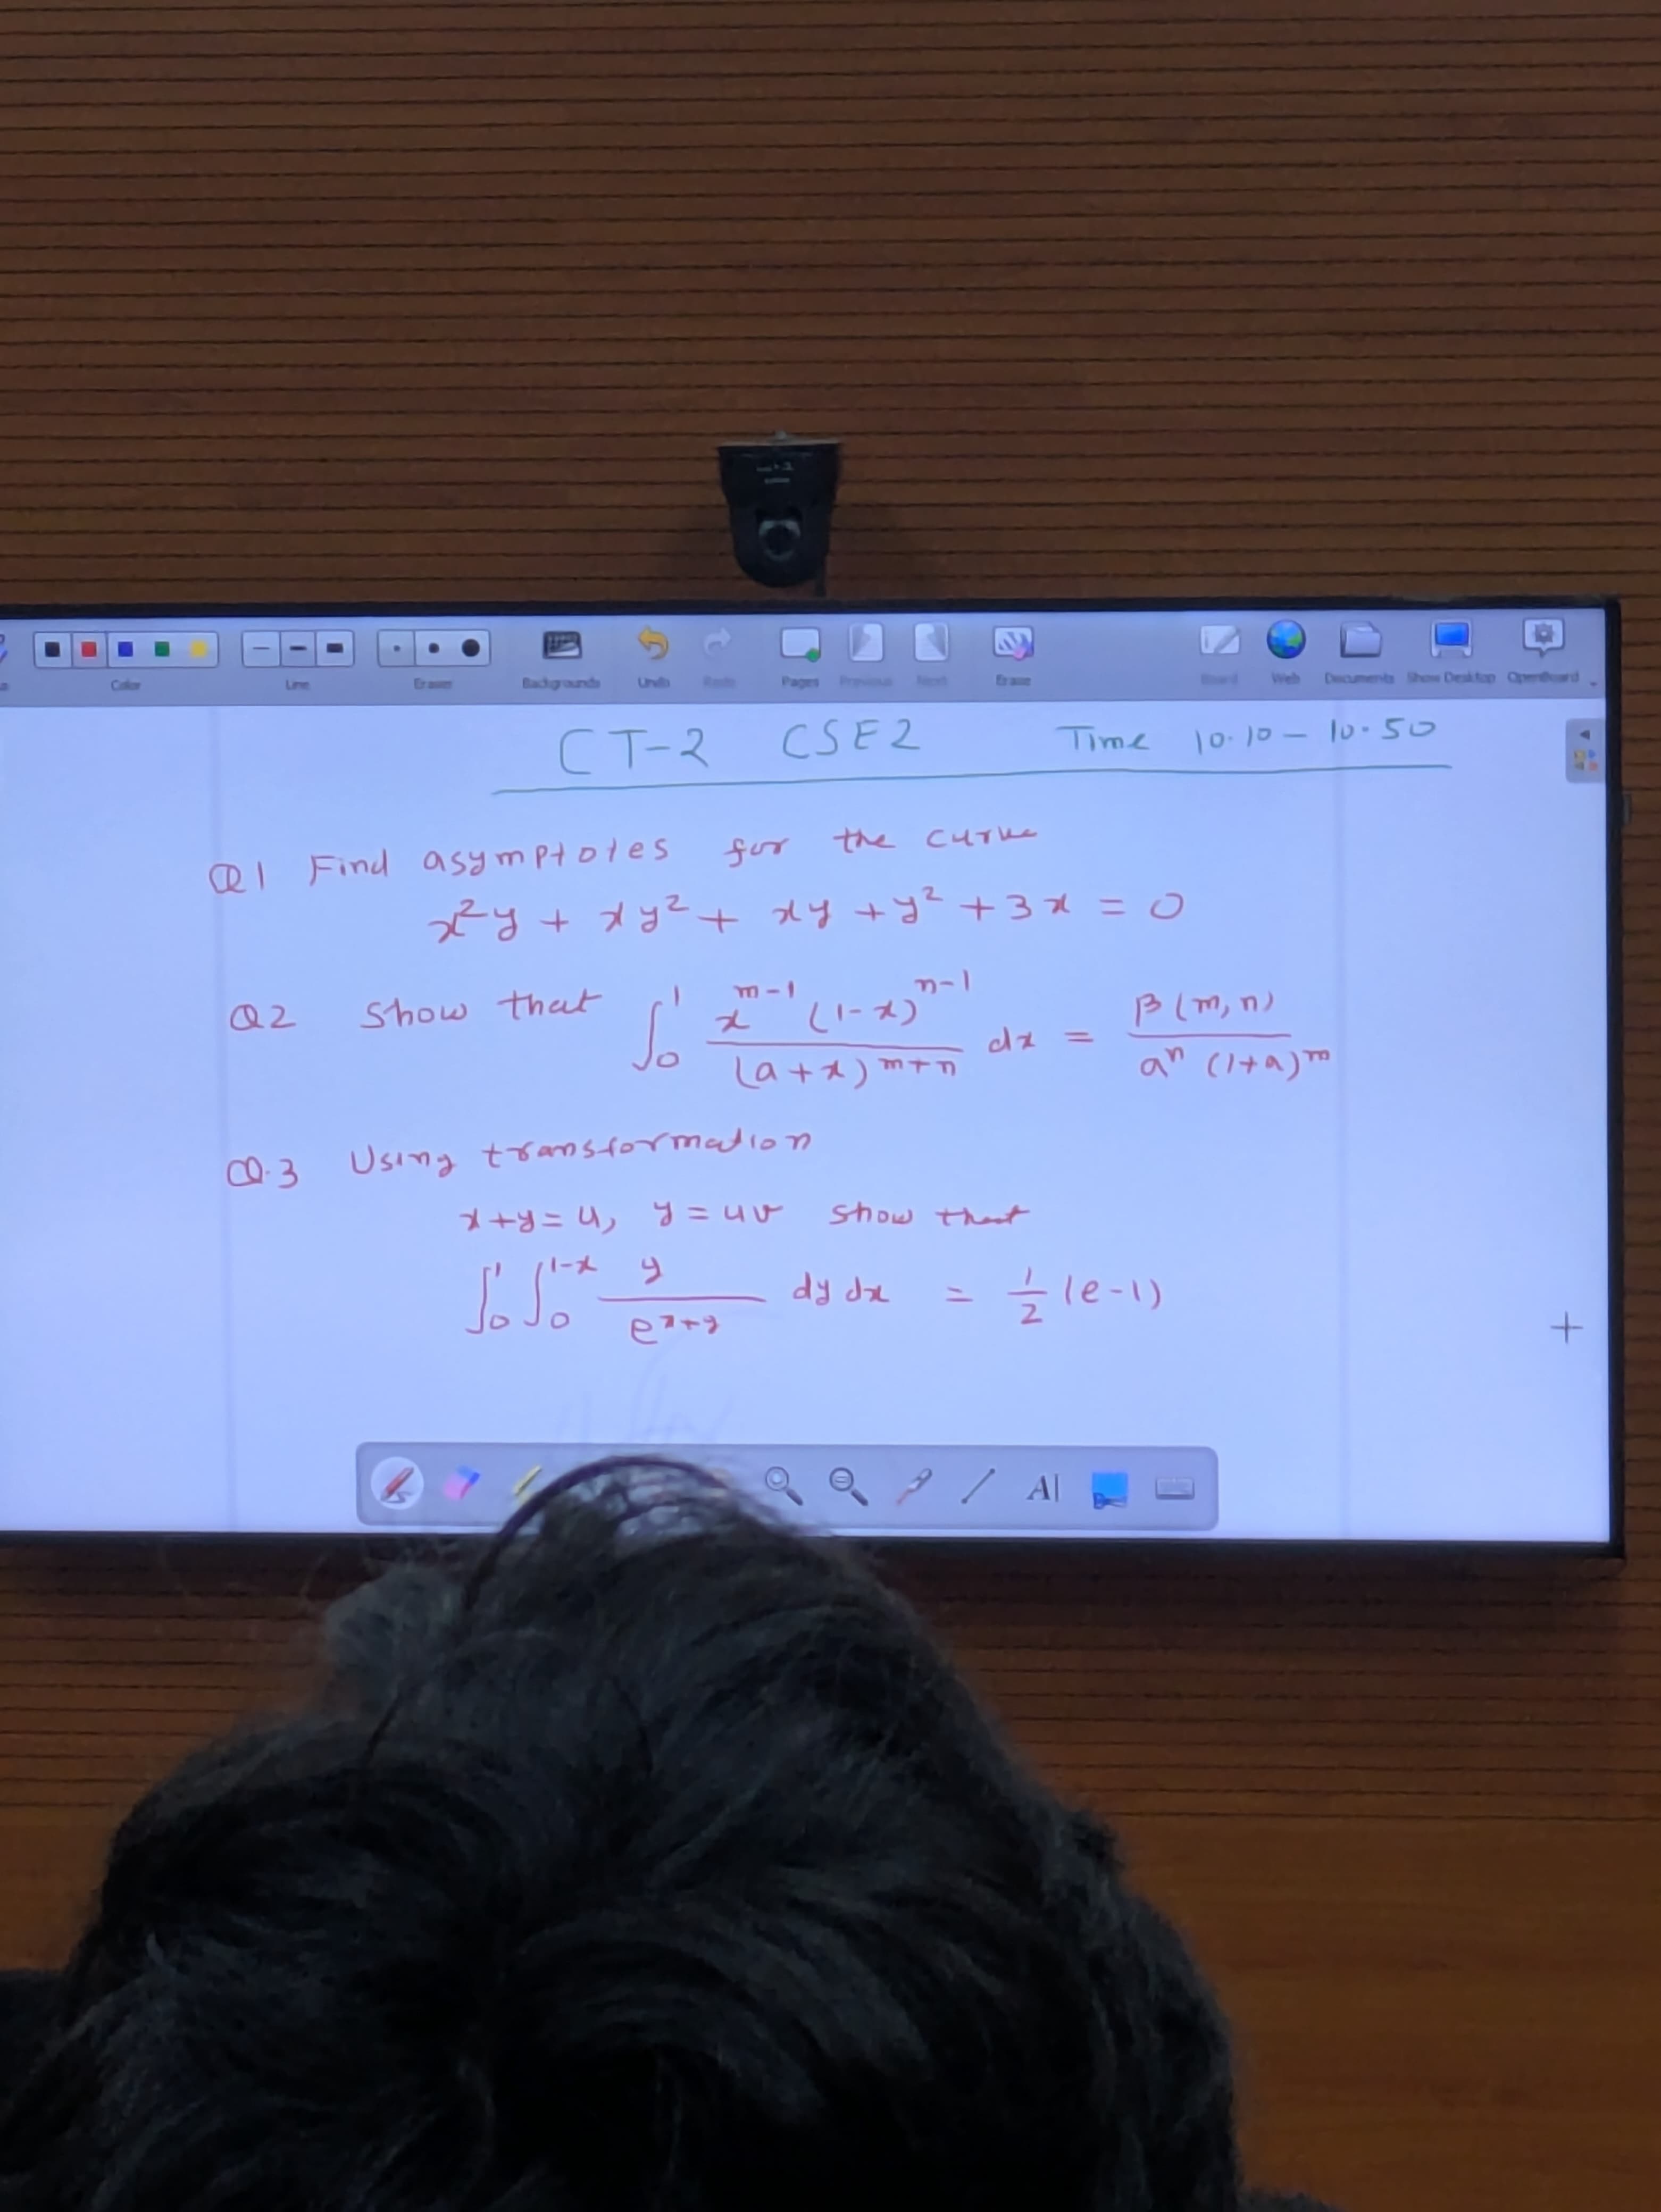 Color Line Eraser Backgrounds Undo Redo Pages Previous Next Erase Board Web Documents Show Desktop OpenBoard
CT-2 CSE2 Time 10.10 – 10.50
Q1 Find asymptotes for the curve
x²y + xy² + xy + y² + 3x = 0
Q2 Show that ∫₀¹ x^(m-1) (1-x)^(n-1) / (a+x)^(m+n) dx = β(m,n) / aⁿ (1+a)^m
Q.3 Using transformation
x+y=u, y=uv show that
∫₀¹ ∫₀^(1-x) y / e^(x+y) dy dx = 1/2 (e-1)
AI